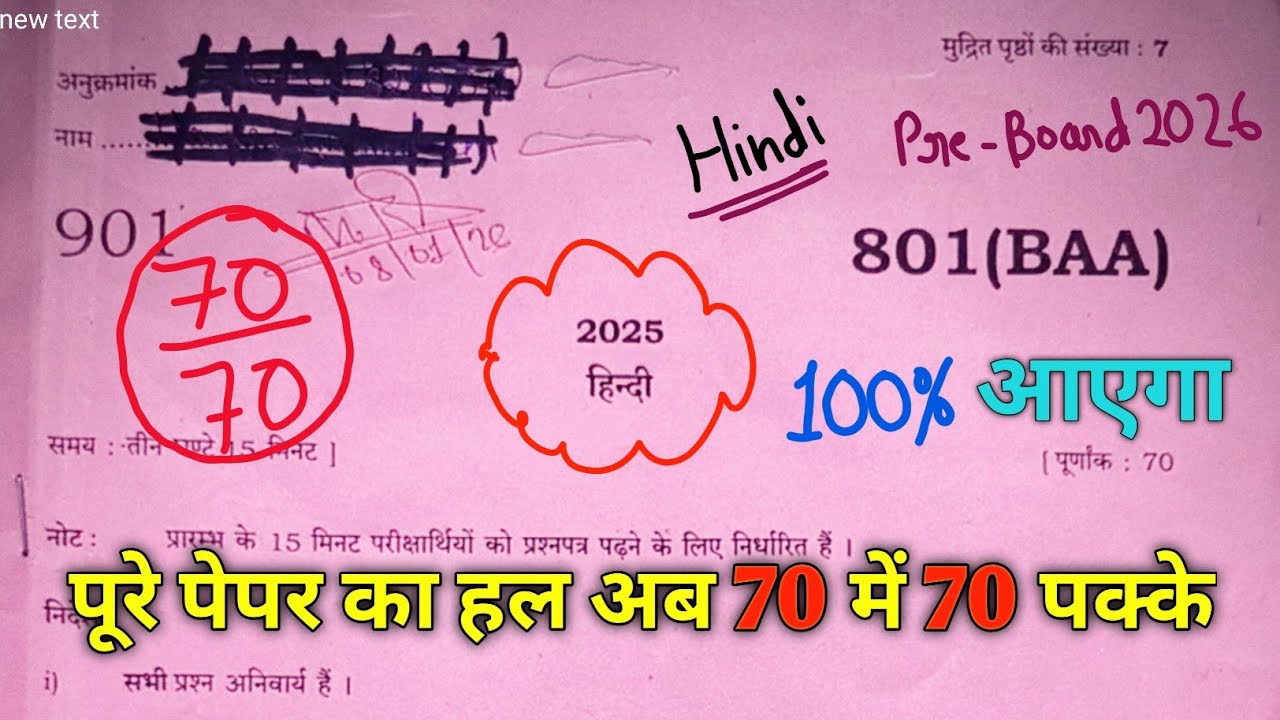 new text
मुद्रित पृष्ठों की संख्या : 7
अनुक्रमांक
नाम ......
Hindi
Pre-Board 2026
901
801(BAA)
70
70
2025
हिन्दी
100% आएगा
समय : तीन घण्टे 15 मिनट ]
[ पूर्णांक : 70
नोट : प्रारम्भ के 15 मिनट परीक्षार्थियों को प्रश्नपत्र पढ़ने के लिए निर्धारित हैं ।
पूरे पेपर का हल अब 70 में 70 पक्के
i) सभी प्रश्न अनिवार्य हैं ।